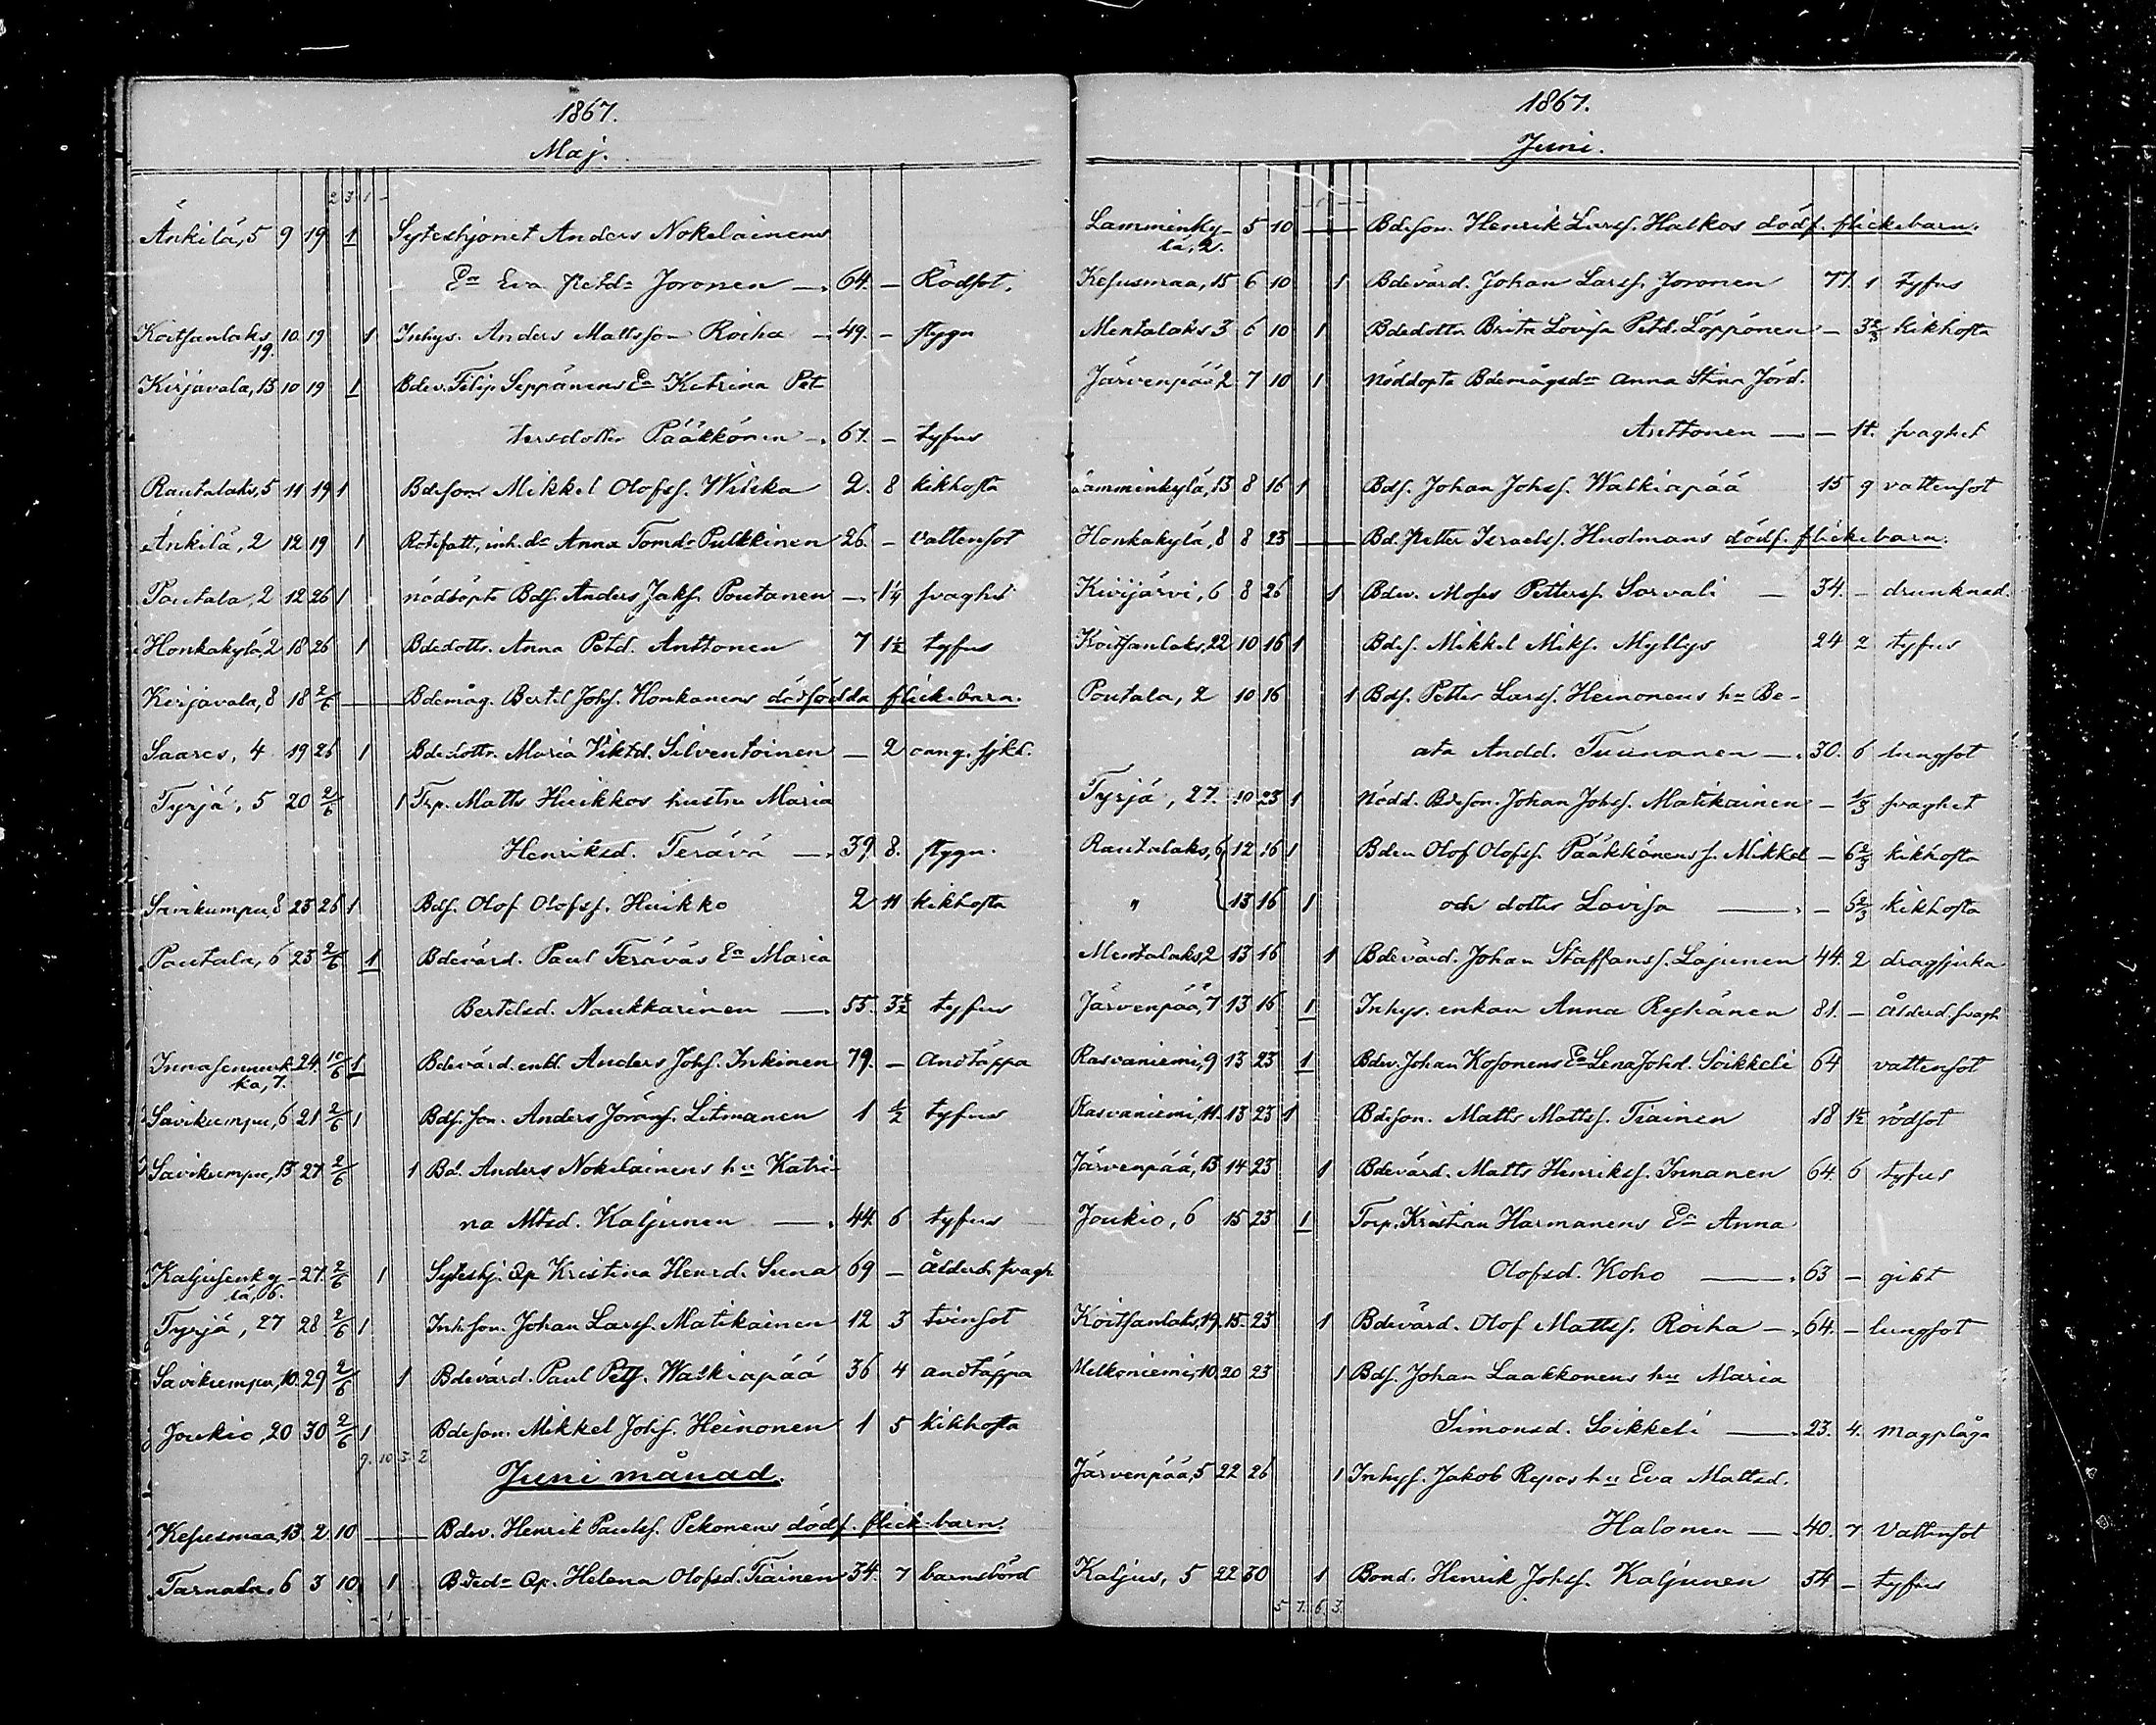 1867.
Maj.
2 3 1 -
Änkilä, 5 9 19 1 Syteshjonet Anders Nokelainens
Ea Eva Petd. Joronen — 64. — Rödsot.
Koitsanlaks, 19. 10 19 1 Inhys. Anders Mattsson Roiha — 49. — stygn
Kirjavala, 13 10 19 1 Bdev. Filip Seppänens Ea Katrina Pet-
tersdotter Pääkkönen — 67. — tyfus
Rautalaks, 5 11 19 1 Bdeson Mikkel Olofss. Wilska 2. 8 kikhosta
Änkilä, 2 12 19 1 Rotefatt. inh. dr Anna Tomdr Pulkkinen 26. — vattensot
Poutala, 2 12 26 1 nöddöpte Bds. Anders Jaks. Poutanen — 1/4 svaghet
Honkakylä, 2 18 26 1 Bdedottr. Anna Petd. Anttonen 7 1½ tyfus
Kirjavala, 8 18 2/6 — Bdemåg. Bertil Johs. Honkanens dödfödda flickebarn.
Saares, 4 19 26 1 Bdedottr. Maria Viktd. Silventoinen — 2 oang. sjkd.
Tyrjä, 5 20 2/6 1 Trp. Matts Huikkos hustru Maria
Henriksd. Terävä —. 39 8. stygn.
Savikumpu, 8 23 26 1 Bds. Olof Olofss. Huikko 2 11 kikhosta
Poutala, 6 23 2/6 1 Bdevärd. Paul Terävas Ea Maria
Bertilsd. Naukkarinen —. 55. 3½ tyfus
24. 10/6 1 Bdevärd. enkl. Anders Johs. Inkinen 79. — andtäppa
Savikumpu, 6 21 2/6 1 Bds. son. Anders Jöranss. Litmanen 1 ½ tyfus
Savikumpu, 13 27 2/6 1 Bd. Anders Nokelainens hu Katri-
na Mtsd. Kaljunen —. 44. 6 tyfus
Kaljusenky- 27. 2/6 1 Syteshj. Qp Kristina Henrd. Suna 69 — Ålderd. svagh
lä, 6.
Tyrjä, 27 28 2/6 1 Inh. son. Johan Larss. Matikainen 12 3 tvinsot
Savikumpu, 10. 29 2/6 1 Bdevärd. Paul Pets. Walkiapää 36 4 andtäppa
Joukio, 20 30 2/6 1 Bdeson. Mikkel Johs. Heinonen 1 5 kikhosta
9. 10 5 2
Juni månad.
Kesusmaa, 13 2. 10 — Bdev. Henrik Paulss. Pekonens dödf. flickebarn.
Tarnala, 6 3 10 1 Bdedr Qp. Helena Olofsd. Tiainen 34. 7 barnsbörd
- 1 - -
1867.
Juni.
Lamminky- 5 10 — Bdeson. Henrik Larss. Halkos dödf. flickebarn.
lä, 2.
Kesusmaa, 15 6 10 1 Bdevärd. Johan Larss. Joronen 77. 1 tyfus
Mentalaks 3 6 10 1 Bdedottr. Brita Lovisa Petd. Löppönen — 3⅔ kikhosta
Järvenpää, 2 7 10 1 nöddöpta Bdemågsdr Anna Stina Jörd.
Anttonen — — 1t. svaghet
Lamminkylä, 13 8 16 1 Bds. Johan Johss. Walkiapää 15 9 vattensot
Honkakylä, 8 8 23 — Bd. Petter Israelss. Huolmans dödf. flickebarn.
Kivijärvi, 6 8 26 1 Bdev. Moses Petterss. Sorvali — 34. — drunknad.
Koitsanlaks, 22 10 16 1 Bdes. Mikkel Miks. Myllys 24 2 tyfus
Poutala, 2 10 16 1 Bds. Petter Larss. Heinonens hu Be-
ata Andd. Tuunanen —. 30. 6 lungsot
Tyrjä, 27. 10 23 1 Nödd. Bdeson. Johan Johss. Matikainen — ⅓ svaghet
Rautalaks, 6 12 16 1 Bden Olof Olofss. Pääkkönens s. Mikkel — 6⅔ kikhosta
" 13 16 1 och dotter Lovisa —. — 5⅔ kikhosta
Mentalaks, 2 13 16 1 Bdevärd. Johan Staffanss. Lajunen 44. 2 dragsjuka
Järvenpää, 7 13 16 1 Inhys. enkan Anna Ryhänen 81. — ålderd. svagh
Rasvaniemi, 9 13 23 1 Bdev. Johan Kosonens Ea Lena Johsd. Soikkeli 64 vattensot
Rasvaniemi, 11. 13 23 1 Bdeson. Matts Mattss. Tiainen 18 1½ rödsot
Järvenpää, 13 14 23 1 Bdevärd. Matts Henrikss. Innanen 64. 6 tyfus
Joukio, 6 15 23 1 Torp. Kristian Harmanens Ea Anna
Olofsd. Koho —. 63 — gikt
Koitsanlaks, 19. 15. 23 1 Bdevärd. Olof Mattss. Roiha —. 64. — lungsot
Melkoniemi, 10. 20 23 1 Bds. Johan Laakkonens hu Maria
Simonsd. Soikkeli —. 23. 4. magplåga
Järvenpää, 5 22 26 1 Inhys. Jakob Repos hu Eva Mattsd.
Halonen — 40. 7 Vattensot
Kaljus, 5 22 30 1 Bond. Henrik Johss. Kaljunen 54 — tyfus
5 7. 6. 3.